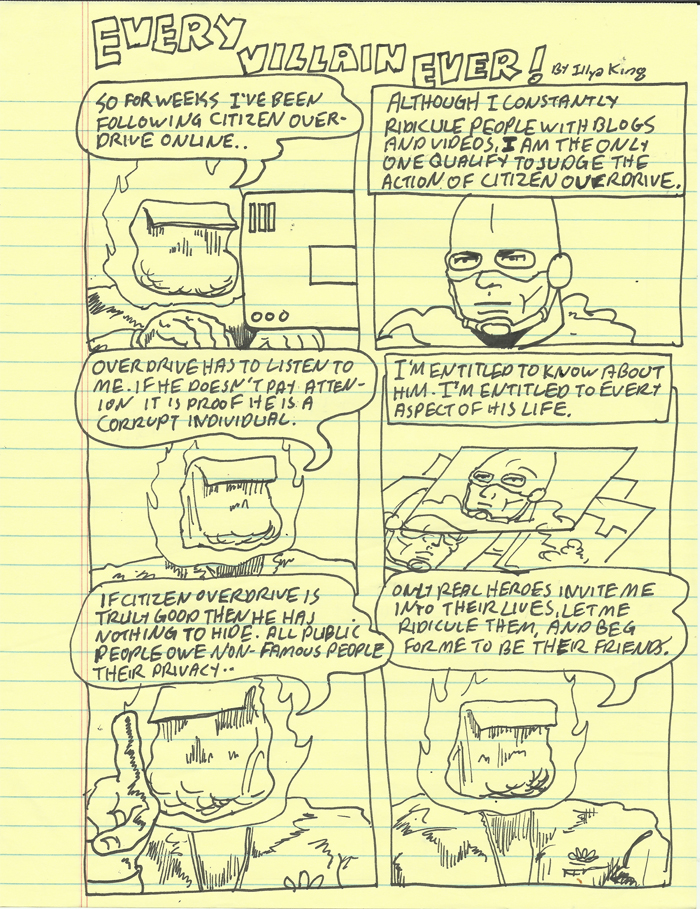 EVERY VILLAIN EVER! BY Illya King
SO FOR WEEKS I'VE BEEN
FOLLOWING CITIZEN OVER-
DRIVE ONLINE..
ALTHOUGH I CONSTANTLY
RIDICULE PEOPLE WITH BLOGS
AND VIDEOS, I AM THE ONLY
ONE QUALIFY TO JUDGE THE
ACTION OF CITIZEN OVERDRIVE.
OVERDRIVE HAS TO LISTEN TO
ME. IF HE DOESN'T PAY ATTEN-
ION IT IS PROOF HE IS A
CORRUPT INDIVIDUAL.
I'M ENTITLED TO KNOW ABOUT
HIM. I'M ENTITLED TO EVERY
ASPECT OF HIS LIFE.
IF CITIZEN OVERDRIVE IS
TRULY GOOD THEN HE HAS
NOTHING TO HIDE. ALL PUBLIC
PEOPLE OWE NON-FAMOUS PEOPLE
THEIR PRIVACY..
ONLY REAL HEROES INVITE ME
INTO THEIR LIVES, LET ME
RIDICULE THEM, AND BEG
FOR ME TO BE THEIR FRIENDS.